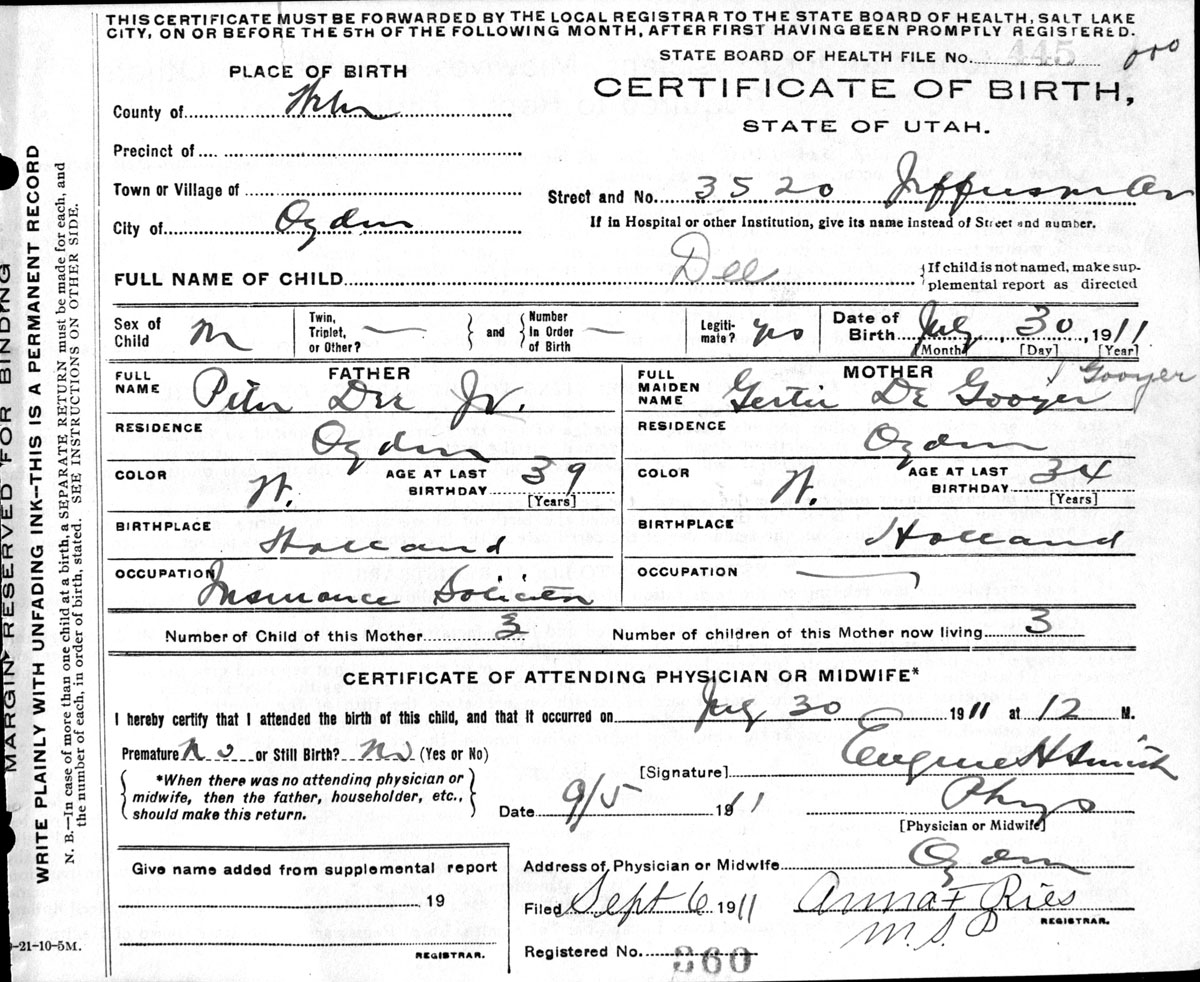 THIS CERTIFICATE MUST BE FORWARDED BY THE LOCAL REGISTRAR TO THE STATE BOARD OF HEALTH, SALT LAKE
CITY, ON OR BEFORE THE 5TH OF THE FOLLOWING MONTH, AFTER FIRST HAVING BEEN PROMPTLY REGISTERED.
STATE BOARD OF HEALTH FILE No. 445
PLACE OF BIRTH
CERTIFICATE OF BIRTH,
STATE OF UTAH.
County of Weber
Precinct of
Town or Village of
Street and No. 3520 Jefferson Av
City of Ogden
If in Hospital or other Institution, give its name instead of Street and number.
FULL NAME OF CHILD Dee
{If child is not named, make sup-
plemental report as directed
Sex of Child M
Twin, Triplet, or Other? —
} and {
Number In Order of Birth —
Legiti-mate? yes
Date of Birth July 30, 1911
[Month] [Day] [Year]
FATHER
FULL NAME Peter Dee Jr.
MOTHER
FULL MAIDEN NAME Gertie De Gooyer
Gooyer
RESIDENCE Ogden
RESIDENCE Ogden
COLOR W. AGE AT LAST BIRTHDAY 39 [Years]
COLOR W. AGE AT LAST BIRTHDAY 34 [Years]
BIRTHPLACE Holland
BIRTHPLACE Holland
OCCUPATION Insurance Soliciter
OCCUPATION —
Number of Child of this Mother 3
Number of children of this Mother now living 3
CERTIFICATE OF ATTENDING PHYSICIAN OR MIDWIFE*
I hereby certify that I attended the birth of this child, and that it occurred on July 30 1911 at 12 M.
Premature No or Still Birth? No (Yes or No)
*When there was no attending physician or
midwife, then the father, householder, etc.,
should make this return.
[Signature] Eugene H Smith
Date 9/5 1911
Phys
[Physician or Midwife]
Give name added from supplemental report
19
REGISTRAR.
Address of Physician or Midwife Ogden
Filed Sept 6 1911
Anna F Ries
M.S.D
REGISTRAR.
Registered No. 360
-21-10-5M.
MARGIN RESERVED FOR BINDING
WRITE PLAINLY WITH UNFADING INK—THIS IS A PERMANENT RECORD
N. B.—In case of more than one child at a birth, a SEPARATE RETURN must be made for each, and
the number of each, in order of birth, stated. SEE INSTRUCTIONS ON OTHER SIDE.